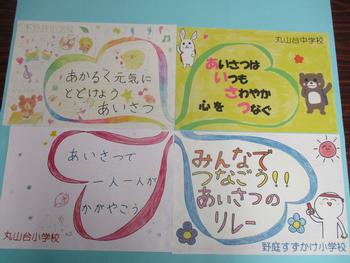 あかるく元気に
とどけよう
あいさつ
丸山台中学校
あいさつは
いつも
さわやか
心を つなぐ
あいさつで
一人一人が
かがやこう
丸山台小学校
みんなで
つなごう!!
あいさつの
リレー
野庭すずかけ小学校